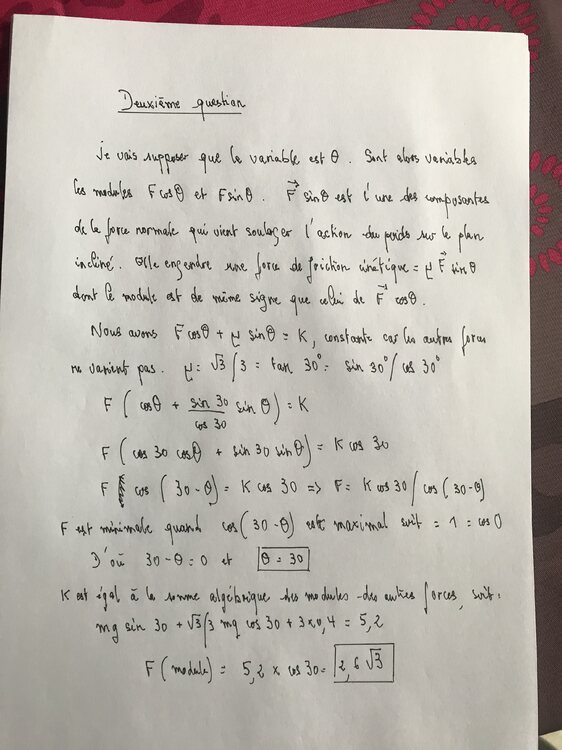 Deuxième question
Je vais supposer que la variable est θ. Sont alors variables
les modules F cosθ et F sinθ. F⃗ sinθ est l'une des composantes
de la force normale qui vient soulager l'action du poids sur le plan
incliné. Elle engendre une force de friction cinétique = μ F⃗ sinθ
dont le module est de même signe que celui de F⃗ cosθ.
Nous avons F cosθ + μ sinθ = K, constante car les autres forces
ne varient pas. μ = √3/3 = tan 30° = sin 30°/cos 30°
F ( cosθ + sin 30/cos 30 sin θ ) = K
F ( cos 30 cosθ + sin 30 sin θ ) = K cos 30
F cos ( 30 - θ ) = K cos 30 => F = K cos 30 / cos ( 30 - θ )
F est minimale quand cos ( 30 - θ ) est maximal soit = 1 = cos 0
D'où 30 - θ = 0 et θ = 30
K est égal à la somme algébrique des modules des autres forces, soit :
mg sin 30 + √3/3 mg cos 30 + 3 x 0,4 = 5,2
F (module) = 5,2 x cos 30 = 2,6 √3